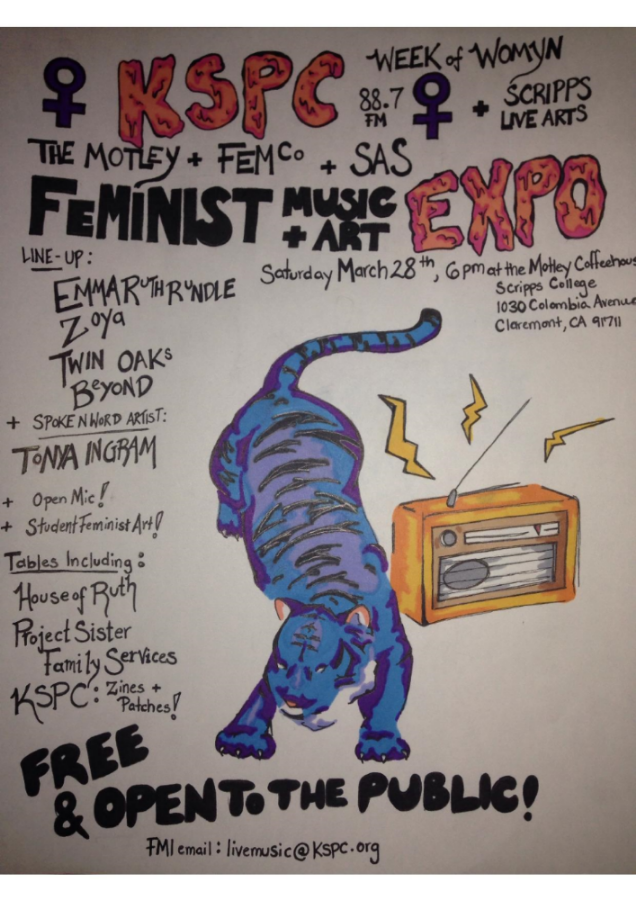 KSPC 88.7 FM
WEEK of WOMYN
+ SCRIPPS LIVE ARTS
THE MOTLEY + FEMCo + SAS
FEMINIST MUSIC + ART EXPO
Saturday March 28th, 6pm at the Motley Coffeehous
Scripps College
1030 Colombia Avenue
Claremont, CA 91711
LINE-UP:
EMMA RUTH RUNDLE
Zoya
TWIN OAKS
BEYOND
+ SPOKEN WORD ARTIST:
TONYA INGRAM
+ Open Mic!
+ Student Feminist Art!
Tables Including:
House of Ruth
Project Sister
Family Services
KSPC: Zines +
Patches!
FREE
& OPEN TO THE PUBLIC!
FMI email: livemusic@kspc.org